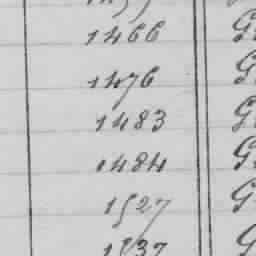 1466 G
1476 G
1483 G
1484 G
1527 G
1537 G